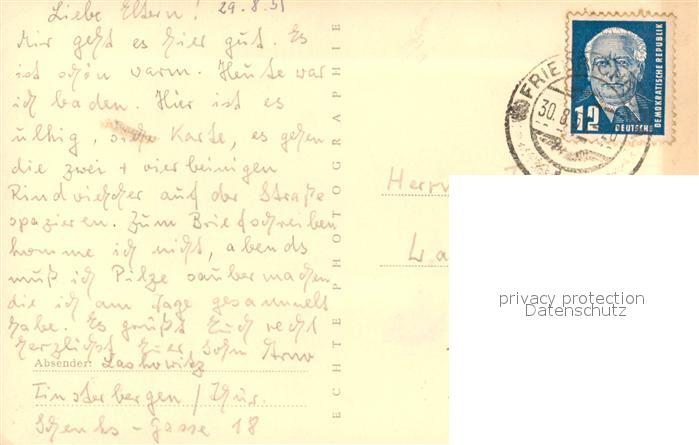 Liebe Eltern! 29.8.51
Mir geht es hier gut. Es
ist schön warm. Heute war
ich baden. Hier ist es
ulkig, siehe Karte, es gehen
die zwei + vierbeinigen
Rindviehcher auf der Straße
spazieren. Zum Briefschreiben
komme ich nicht, abends
muß ich Pilze saubermachen,
die ich am Tage gesammelt
habe. Es grüßt Euch recht
herzlichst Euer Sohn Arno
Absender: Laskowitz
Finsterbergen / Thür.
Schenks-Gasse 18
ECHTE PHOTOGRAPHIE
FRIE
30.8.5
12
DEUTSCHE
DEMOKRATISCHE REPUBLIK
Herrn
La
privacy protection
Datenschutz